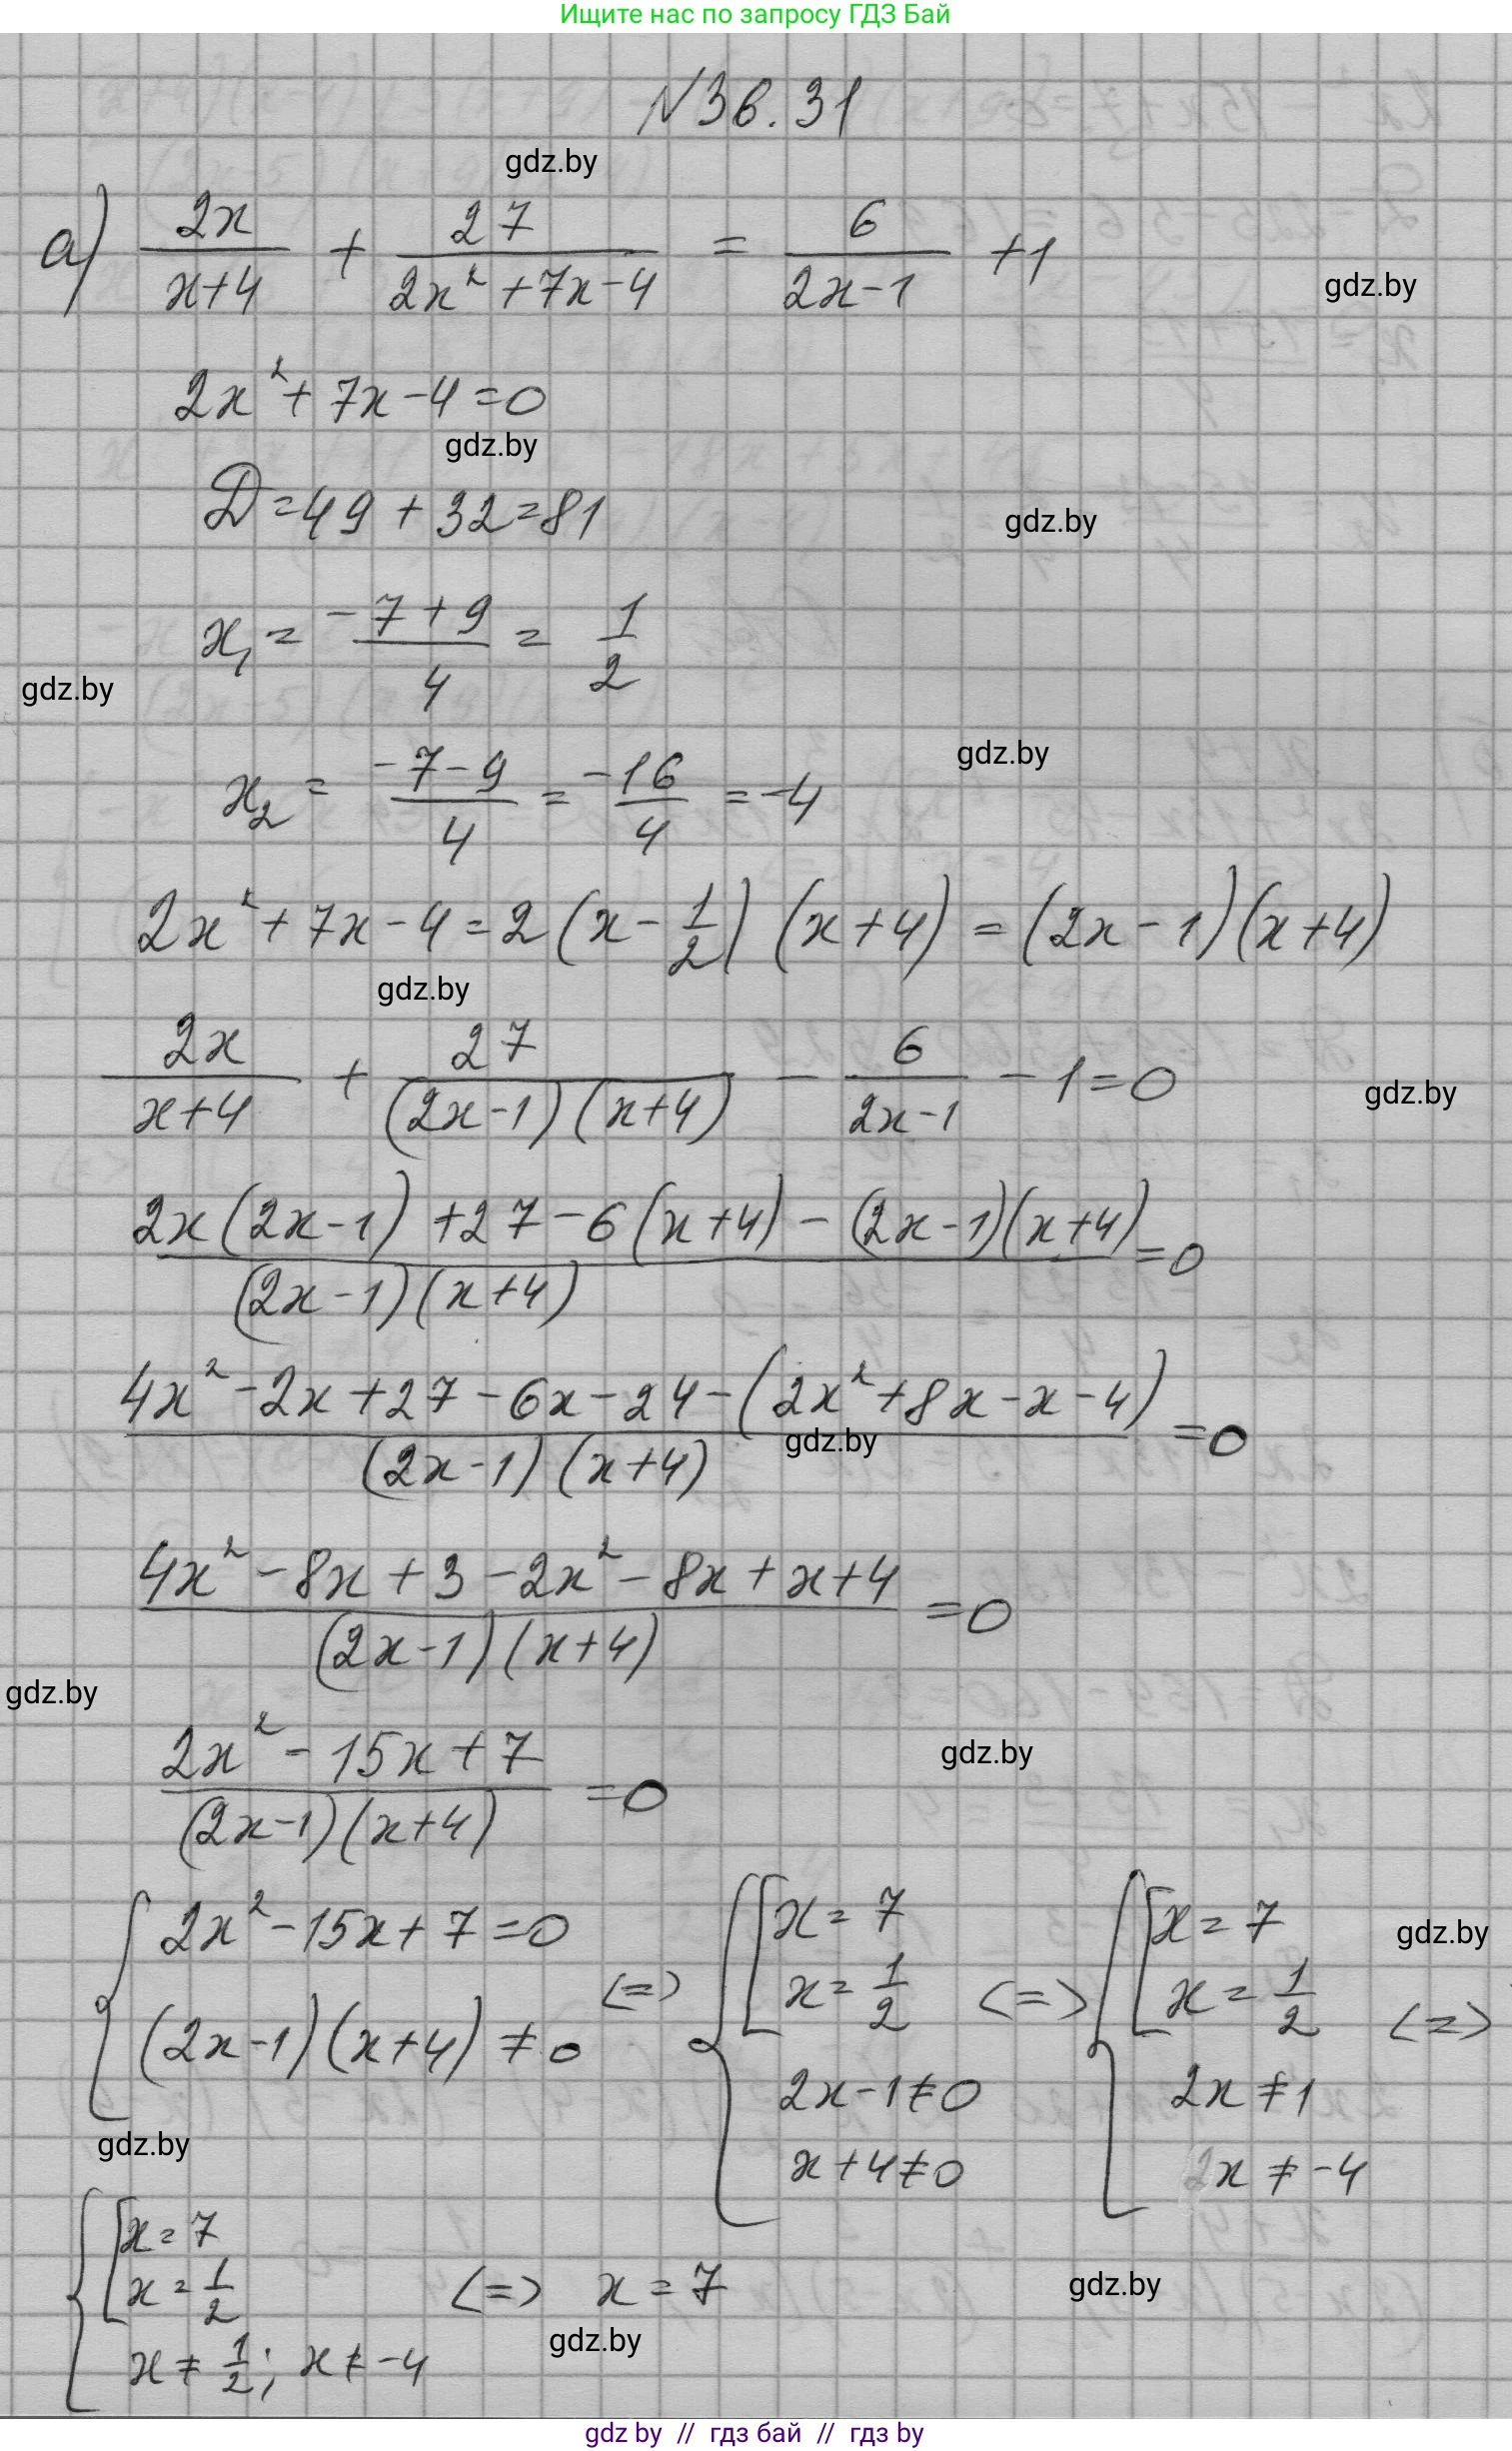 Ищите нас по запросу ГДЗ Бай
№3в.31
gdz.by
а) 2x/(x+4) + 27/(2x²+7x-4) = 6/(2x-1) +1
gdz.by
2x²+7x-4=0
gdz.by
D=49+32=81
gdz.by
x₁ = (-7+9)/4 = 1/2
gdz.by
gdz.by
x₂ = (-7-9)/4 = -16/4 = -4
2x²+7x-4=2(x-1/2)(x+4)=(2x-1)(x+4)
gdz.by
2x/(x+4) + 27/((2x-1)(x+4)) - 6/(2x-1) -1=0
gdz.by
(2x(2x-1)+27-6(x+4)-(2x-1)(x+4))/((2x-1)(x+4)) =0
(4x²-2x+27-6x-24-(2x²+8x-x-4))/((2x-1)(x+4)) =0
gdz.by
(4x²-8x+3-2x²-8x+x+4)/((2x-1)(x+4)) =0
gdz.by
(2x²-15x+7)/((2x-1)(x+4)) =0
gdz.by
{ 2x²-15x+7=0
(2x-1)(x+4)≠0
<=>
{ [ x=7
x=1/2
2x-1≠0
x+4≠0
<=>
{ [ x=7
x=1/2
2x≠1
x≠-4
<=>
gdz.by
gdz.by
{ [ x=7
x=1/2
x≠1/2; x≠-4
<=> x=7
gdz.by
gdz.by
gdz by // гдз бай // гдз by